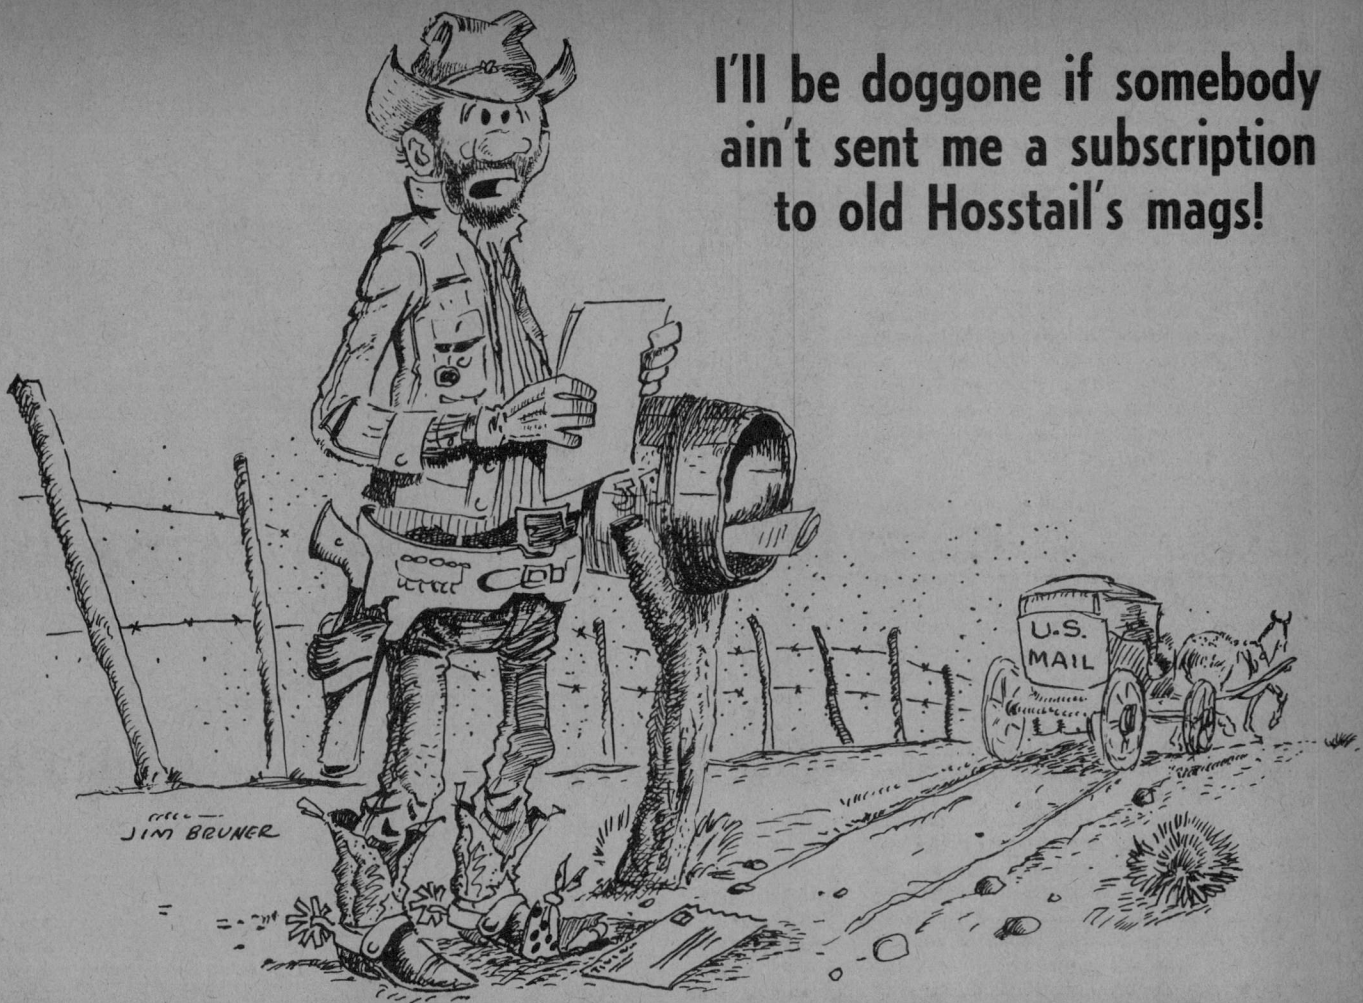 I'll be doggone if somebody
ain't sent me a subscription
to old Hosstail's mags!
U.S.
MAIL
JIM BRUNER